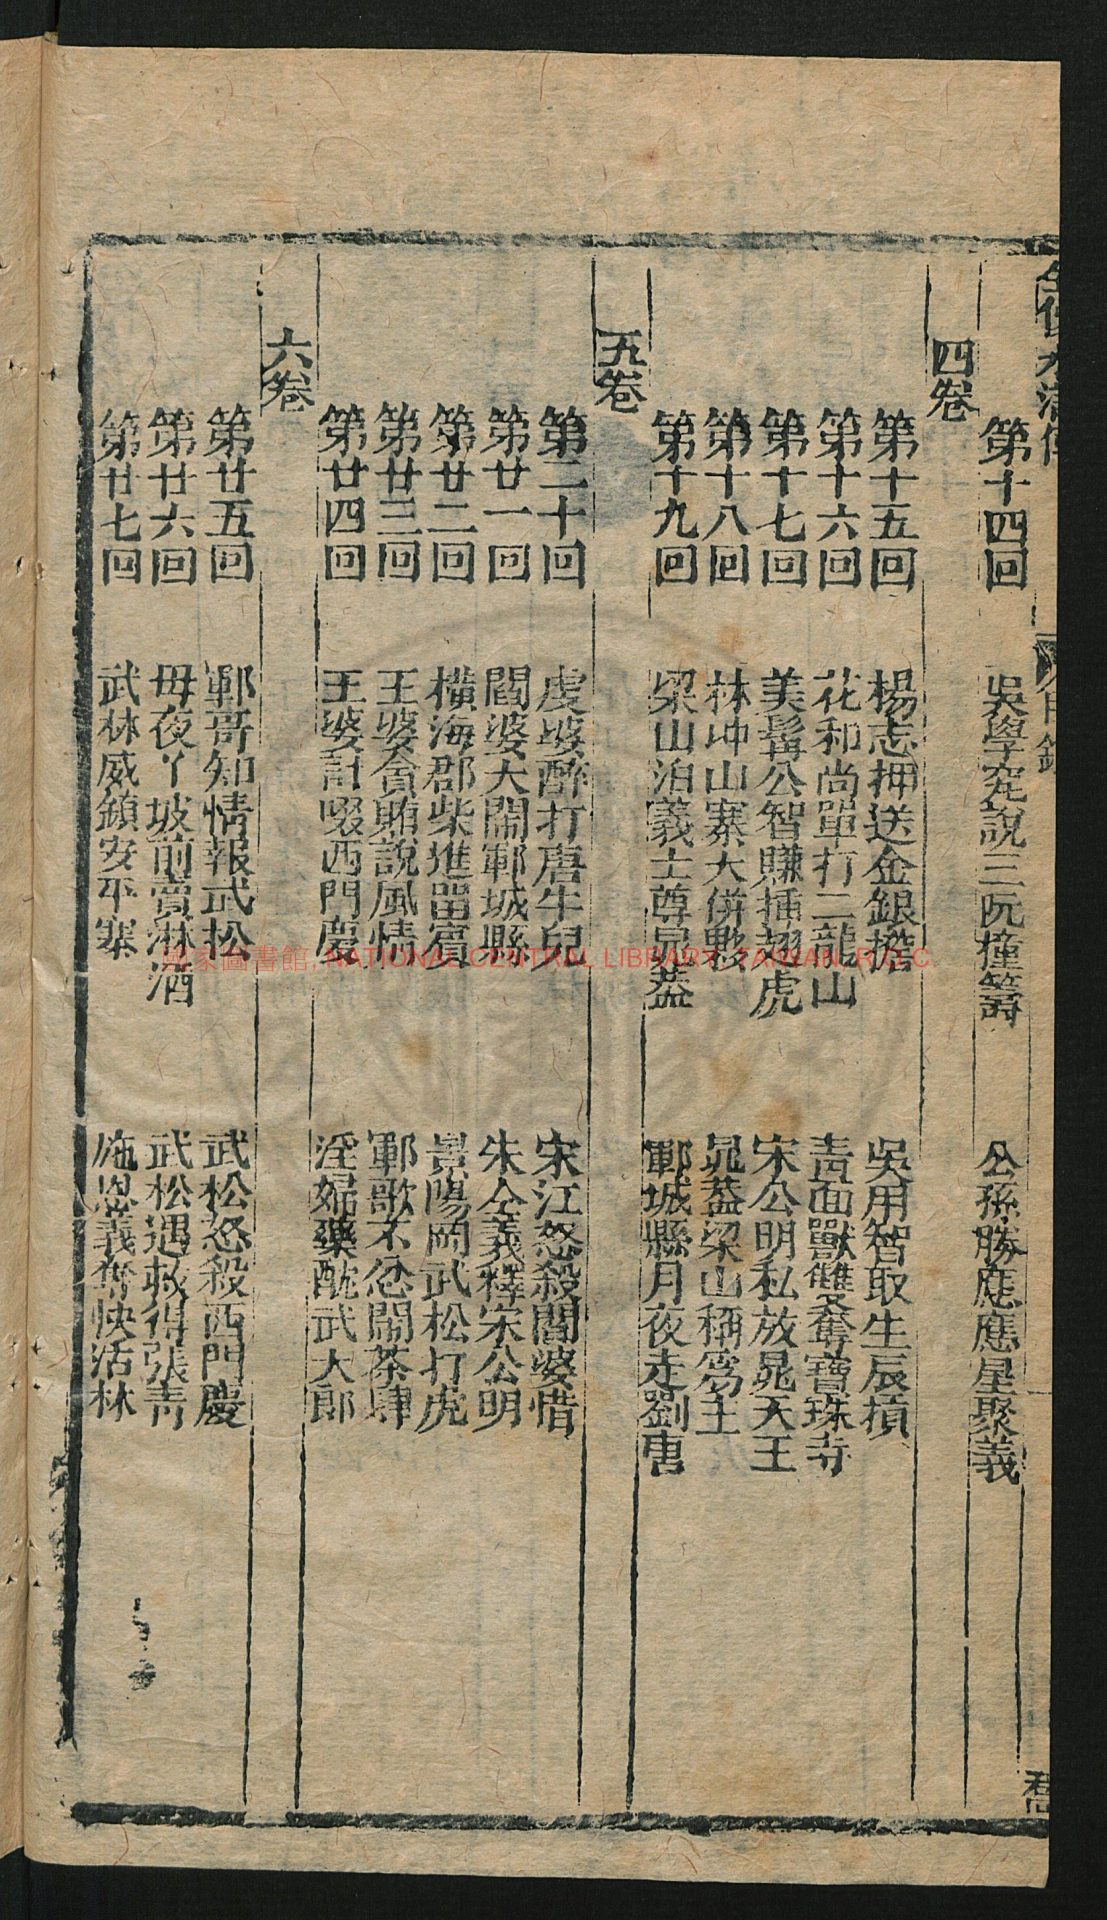 全像水滸傳
目錄
第十四回 吳學究說三阮撞籌 公孫勝應應星聚義
四卷
第十五回 楊志押送金銀擔 吳用智取生辰損
第十六回 花和尚單打二龍山 青面獸雙奪寶珠寺
第十七回 美髯公智賺揷翅虎 宋公明私放晁天王
第十八回 林冲山寨大併夥 晁蓋梁山稱為主
第十九回 梁山泊義士尊晁蓋 鄆城縣月夜走劉唐
五卷
第二十回 虔婆醉打唐牛兒 宋江怒殺閻婆惜
第廿一回 閻婆大鬧鄆城縣 朱仝義釋宋公明
第廿二回 橫海郡柴進留賓 景陽岡武松打虎
第廿三回 王婆貪賄說風情 鄆歌不忿鬧茶肆
第廿四回 王婆計啜西門慶 淫婦藥酖武大郎
六卷
第廿五回 鄆哥知情報武松 武松怒殺西門慶
第廿六回 毋夜丫坡前賣淋酒 武松遇救得張青
第廿七回 武林威鎮安平寨 施恩義奪快活林
國家圖書館, NATIONAL CENTRAL LIBRARY, TAIWAN, R.O.C.